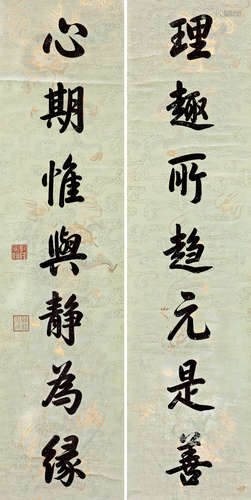 理趣所趋元是善
心期惟與静為缘